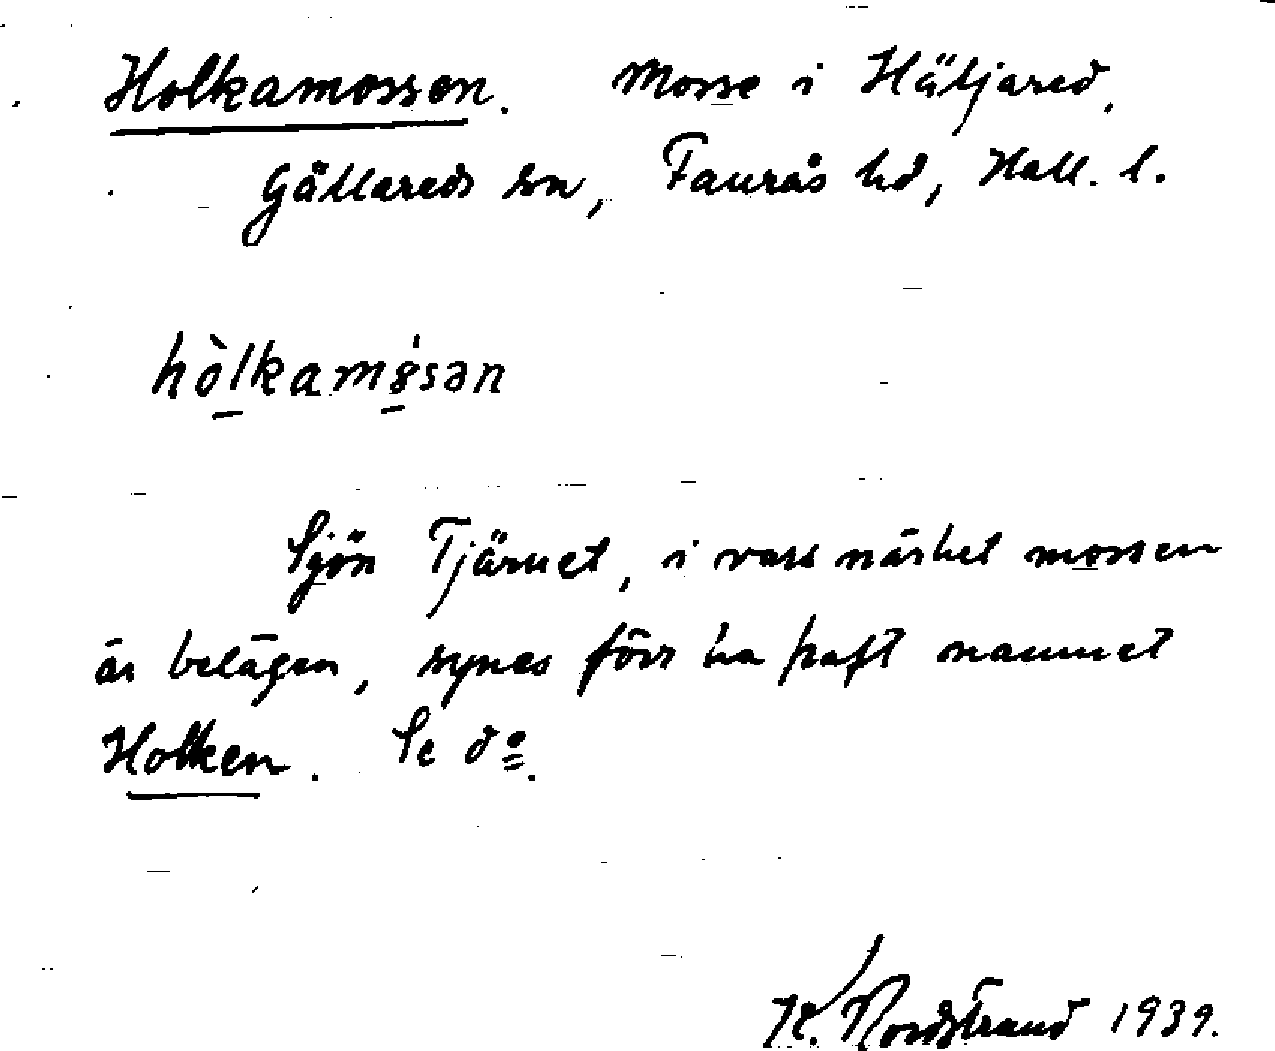 Holkamossen. Mosse i Häljared,
Gällareds sn, Faurås hd, Hall. l.
hòlkamo̍sən
Sjön Tjärnet, i vars närhet mossen
är belägen, synes förr ha haft namnet
Holken. Se do.
K. Nordstrand 1939.